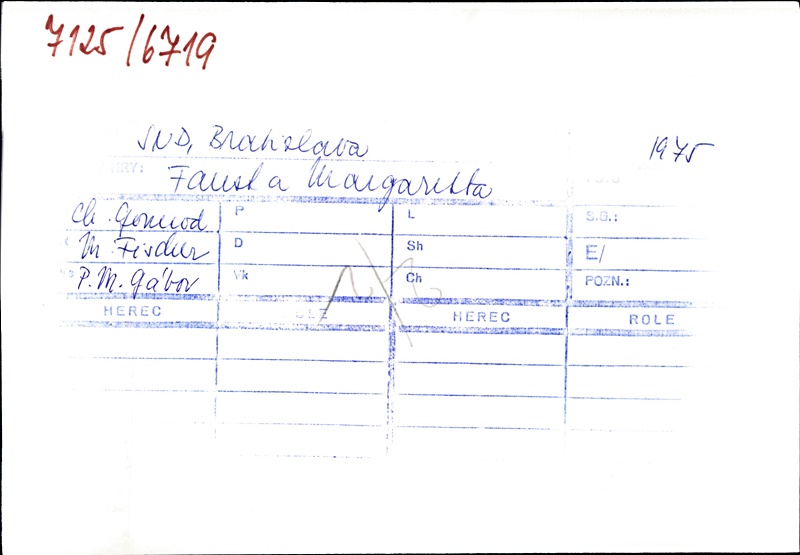 7125/6719
SND, Bratislava 1975
HRY: Faust a Margaretta
Ch. Gounod P L S.G.:
M. Fischer D Sh E/
P. M. Gábor Vk Ch POZN.:
HEREC HEREC ROLE